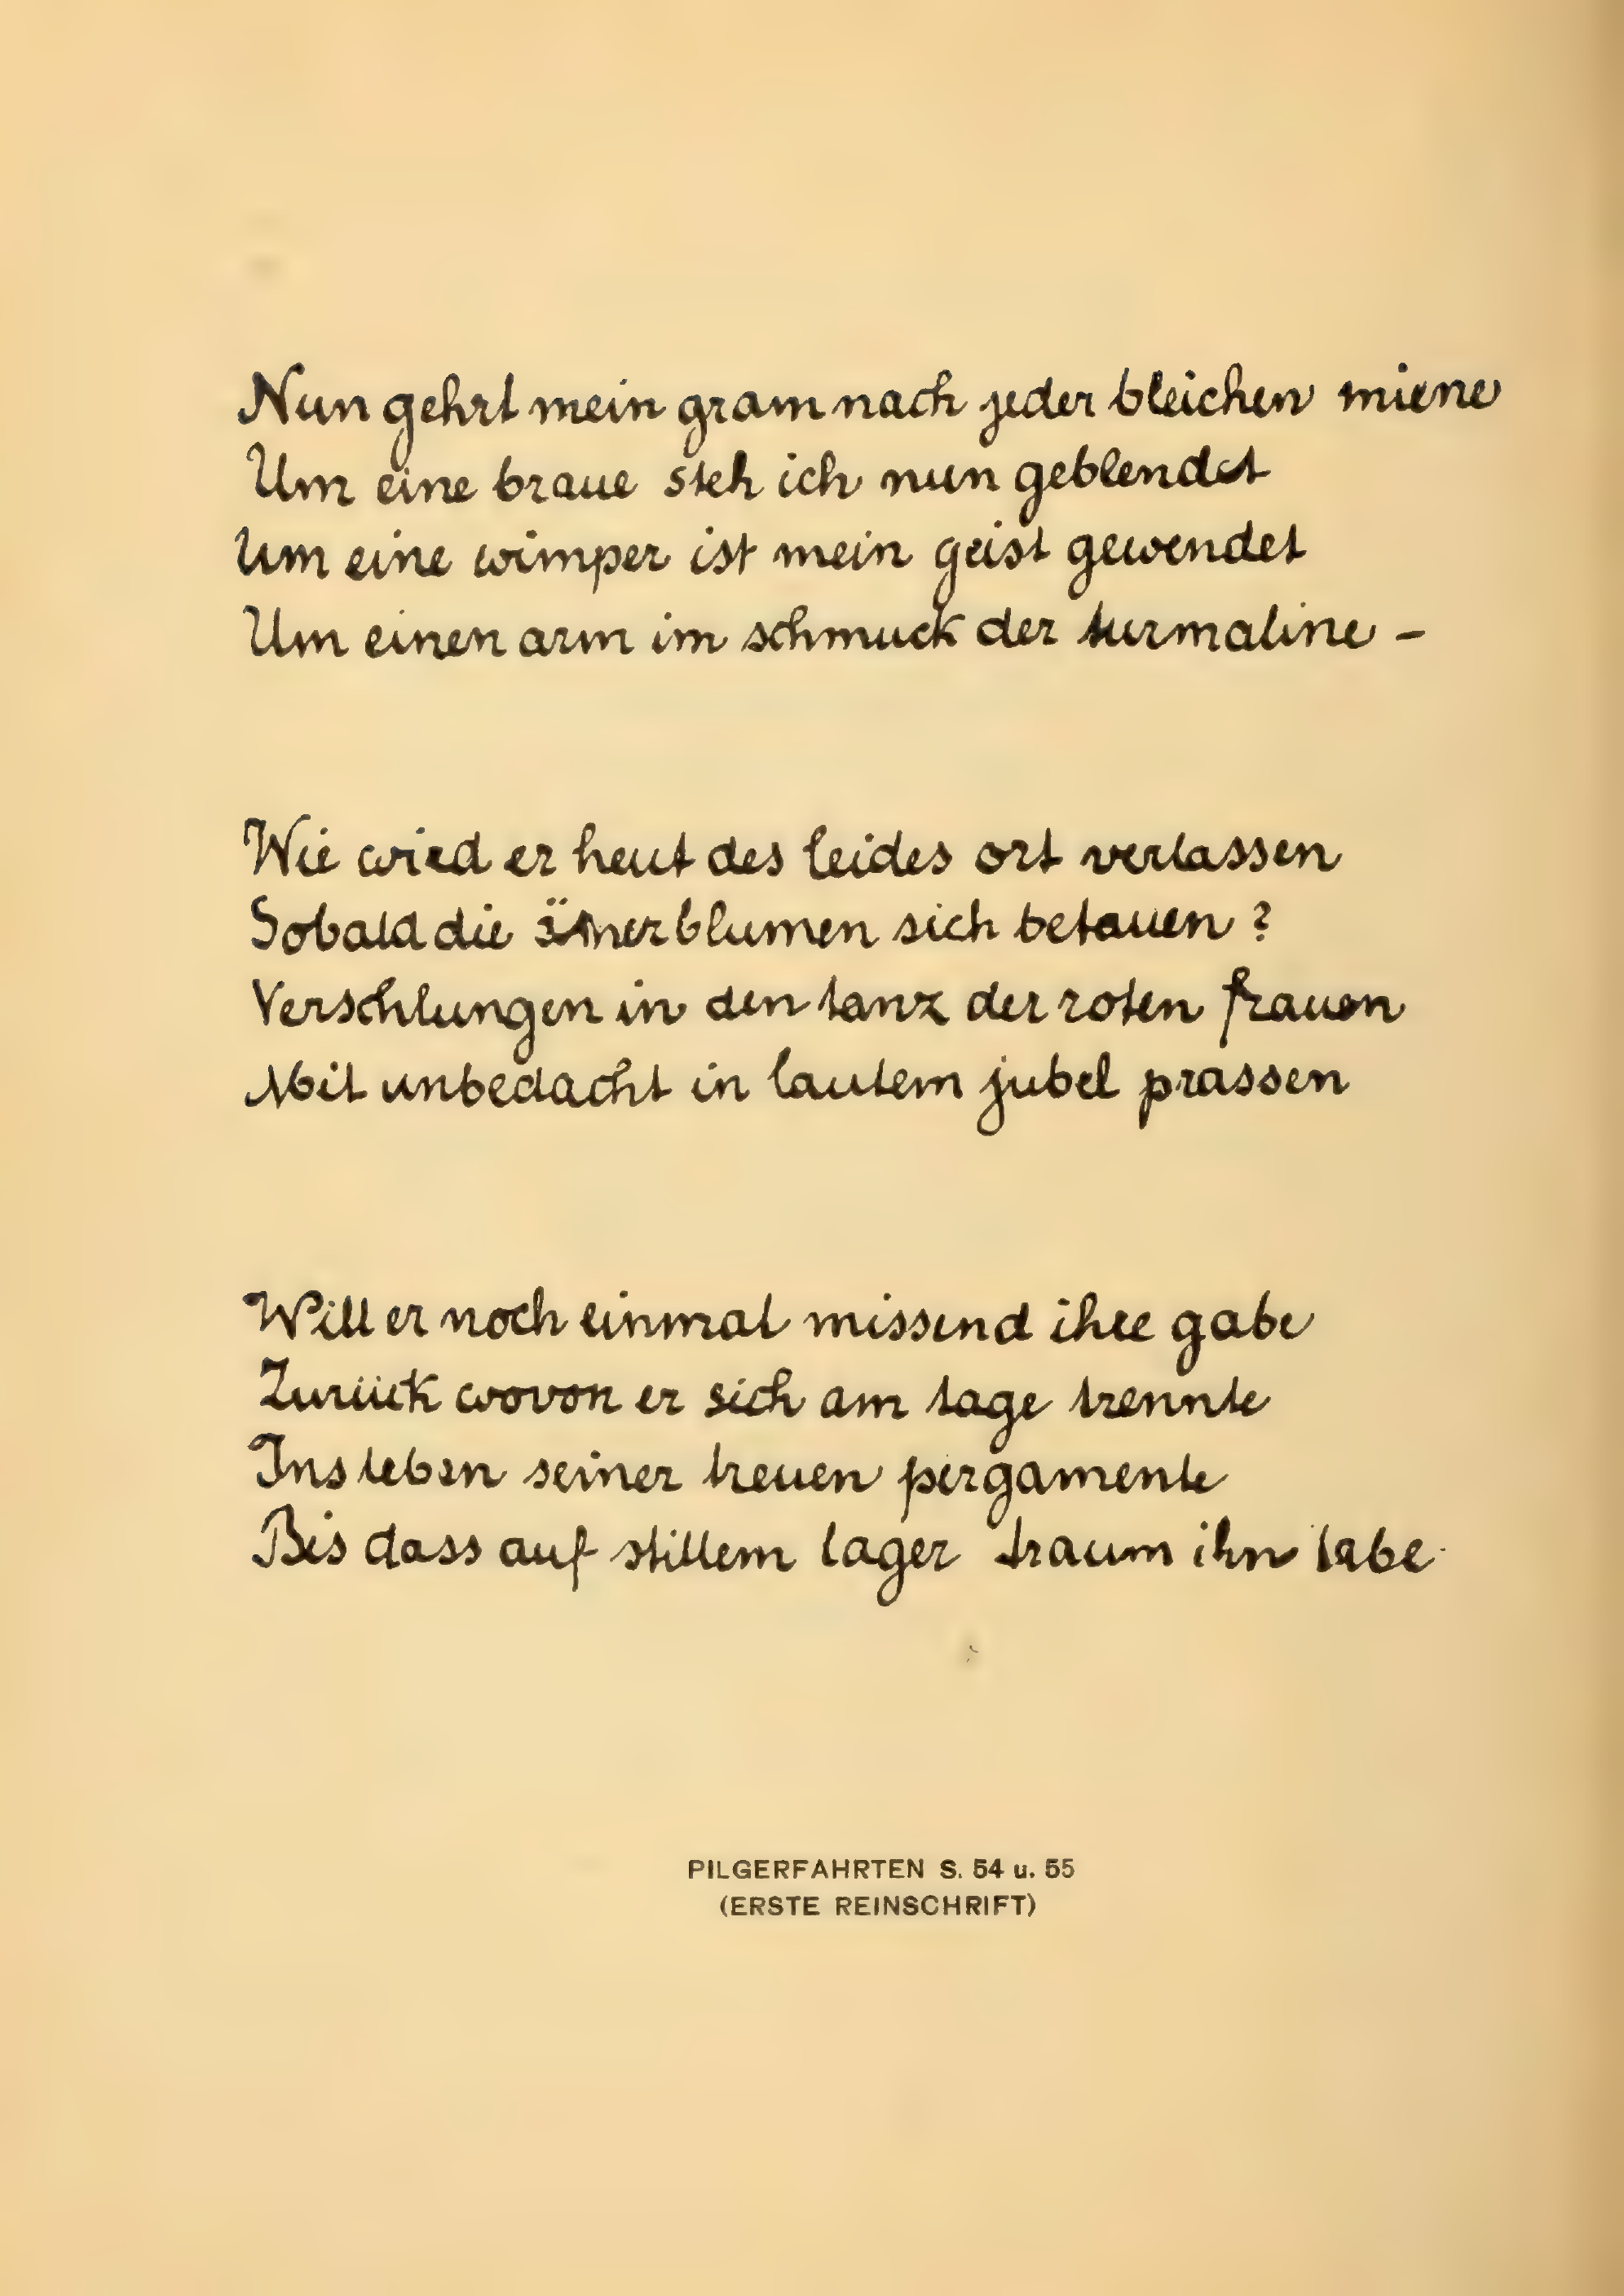 Nun gehrt mein gram nach jeder bleichen miene
Um eine braue steh ich nun geblendet
Um eine wimper ist mein geist gewendet
Um einen arm im schmuck der turmaline –
Wie wird er heut des leides ort verlassen
Sobald die sich betauen ?
Verschlungen in den tanz der roten frauen
Mit unbedacht in lautem jubel prassen
Will er noch einmal missend ihre gabe
Zurück wovon er sich am tage trennte
Ins leben seiner treuen pergamente
Bis dass auf stillem lager traum ihn labe·
PILGERFAHRTEN S. 54 u. 55
(ERSTE REINSCHRIFT)